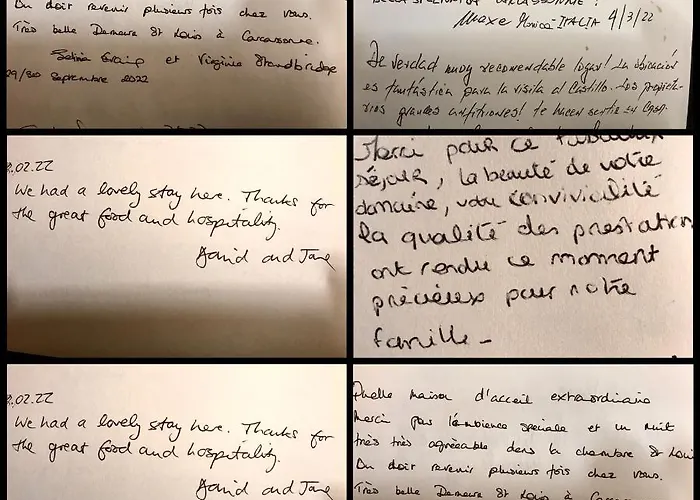 On doit revenir plusieurs fois chez vous.
Très belle Demeure St Louis à Carcassonne.
et Virginie Standbridge
29/30 Septembre 2022
ITALIA 4/3/22
De verdad muy recomendable lugar! La ubicación
es fantástica para la visita al Castillo. Los propieta-
rios grandes anfitriones! te hacen sentir en casa.
.02.22
We had a lovely stay here. Thanks for
the great food and hospitality.
David and Jane
Merci pour ce fabuleux
séjour, la beauté de votre
domaine, votre convivialité
la qualité des prestation
ont rendu ce moment
précieux pour notre
famille -
.02.22
We had a lovely stay here. Thanks for
the great food and hospitality.
David and Jane
Quelle maison d'acceuil extraordinaire
Merci pour l'ambience speciale et un nuit
très très agréeable dans la chambre St Loui
On doit revenir plusieurs fois chez vous.
Très belle Demeure St Louis à